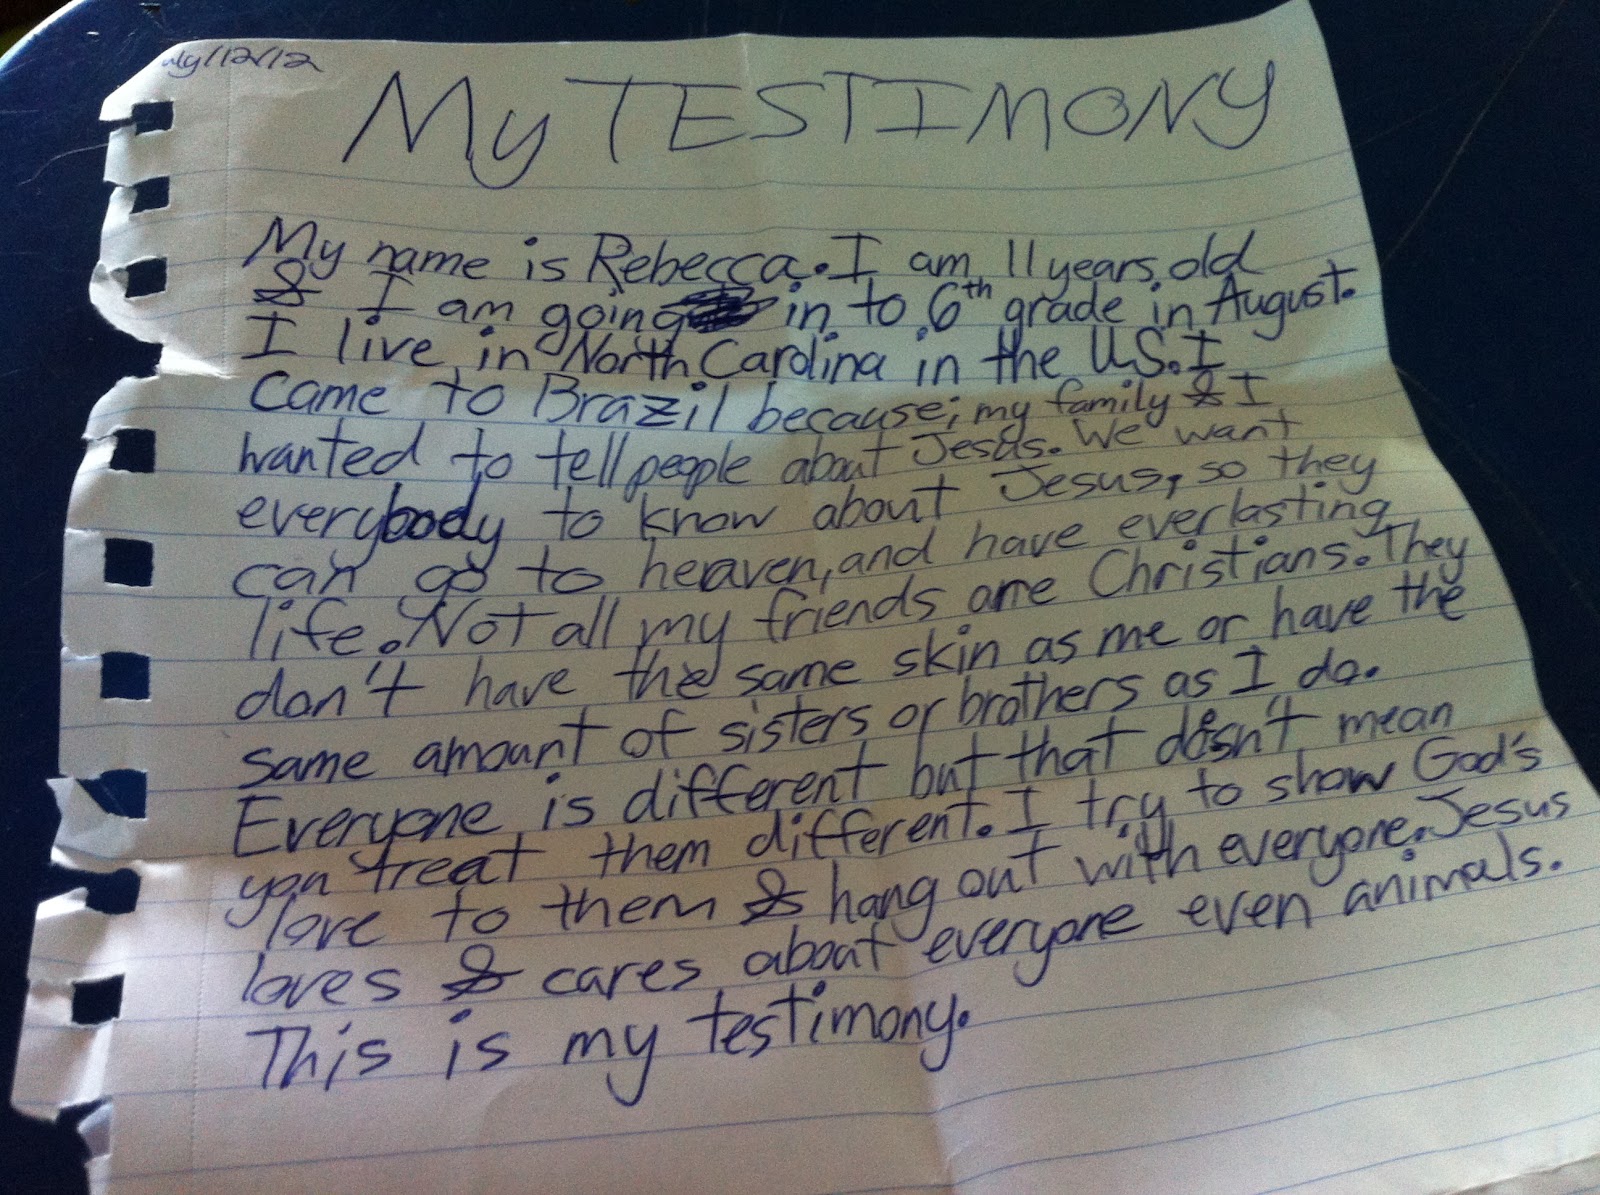 uly/12/12
My TESTIMONY
My name is Rebecca. I am 11 years old
& I am going in to 6th grade in August.
I live in North Carolina in the U.S. I
came to Brazil because; my family & I
wanted to tell people about Jesus. We want
everybody to know about Jesus, so they
can go to heaven, and have everlasting
life. Not all my friends are Christians. They
don't have the same skin as me or have the
same amount of sisters or brothers as I do.
Everyone is different but that doesn't mean
you treat them different. I try to show God's
love to them & hang out with everyone. Jesus
loves & cares about everyone even animals.
This is my testimony.